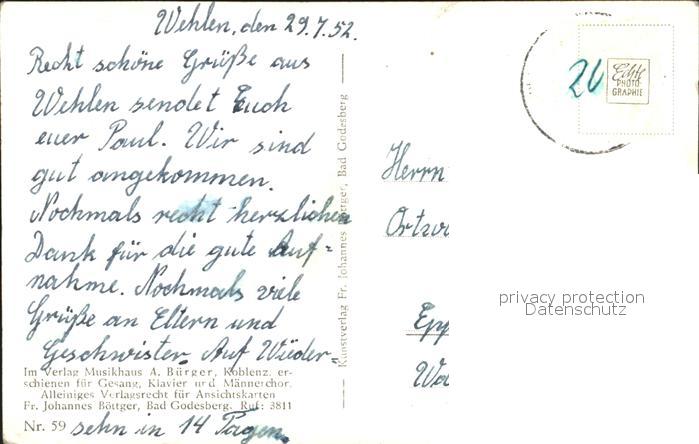 Wehlen, den 29.7.52.
Recht schöne Grüße aus
Wehlen sendet Euch
euer Paul. Wir sind
gut angekommen.
Nochmals recht herzlichen
Dank für die gute Auf=
nahme. Nochmals viele
Grüße an Eltern und
Geschwister. Auf Wieder=
sehn in 14 Tagen.
Im Verlag Musikhaus A. Bürger, Koblenz, er-
schienen für Gesang, Klavier und Männerchor.
Alleiniges Verlagsrecht für Ansichtskarten
Fr. Johannes Böttger, Bad Godesberg. Ruf: 3811
Nr. 59
Kunstverlag Fr. Johannes Böttger, Bad Godesberg
20
Echte
PHOTO-
GRAPHIE
Herrn
privacy protection
Datenschutz